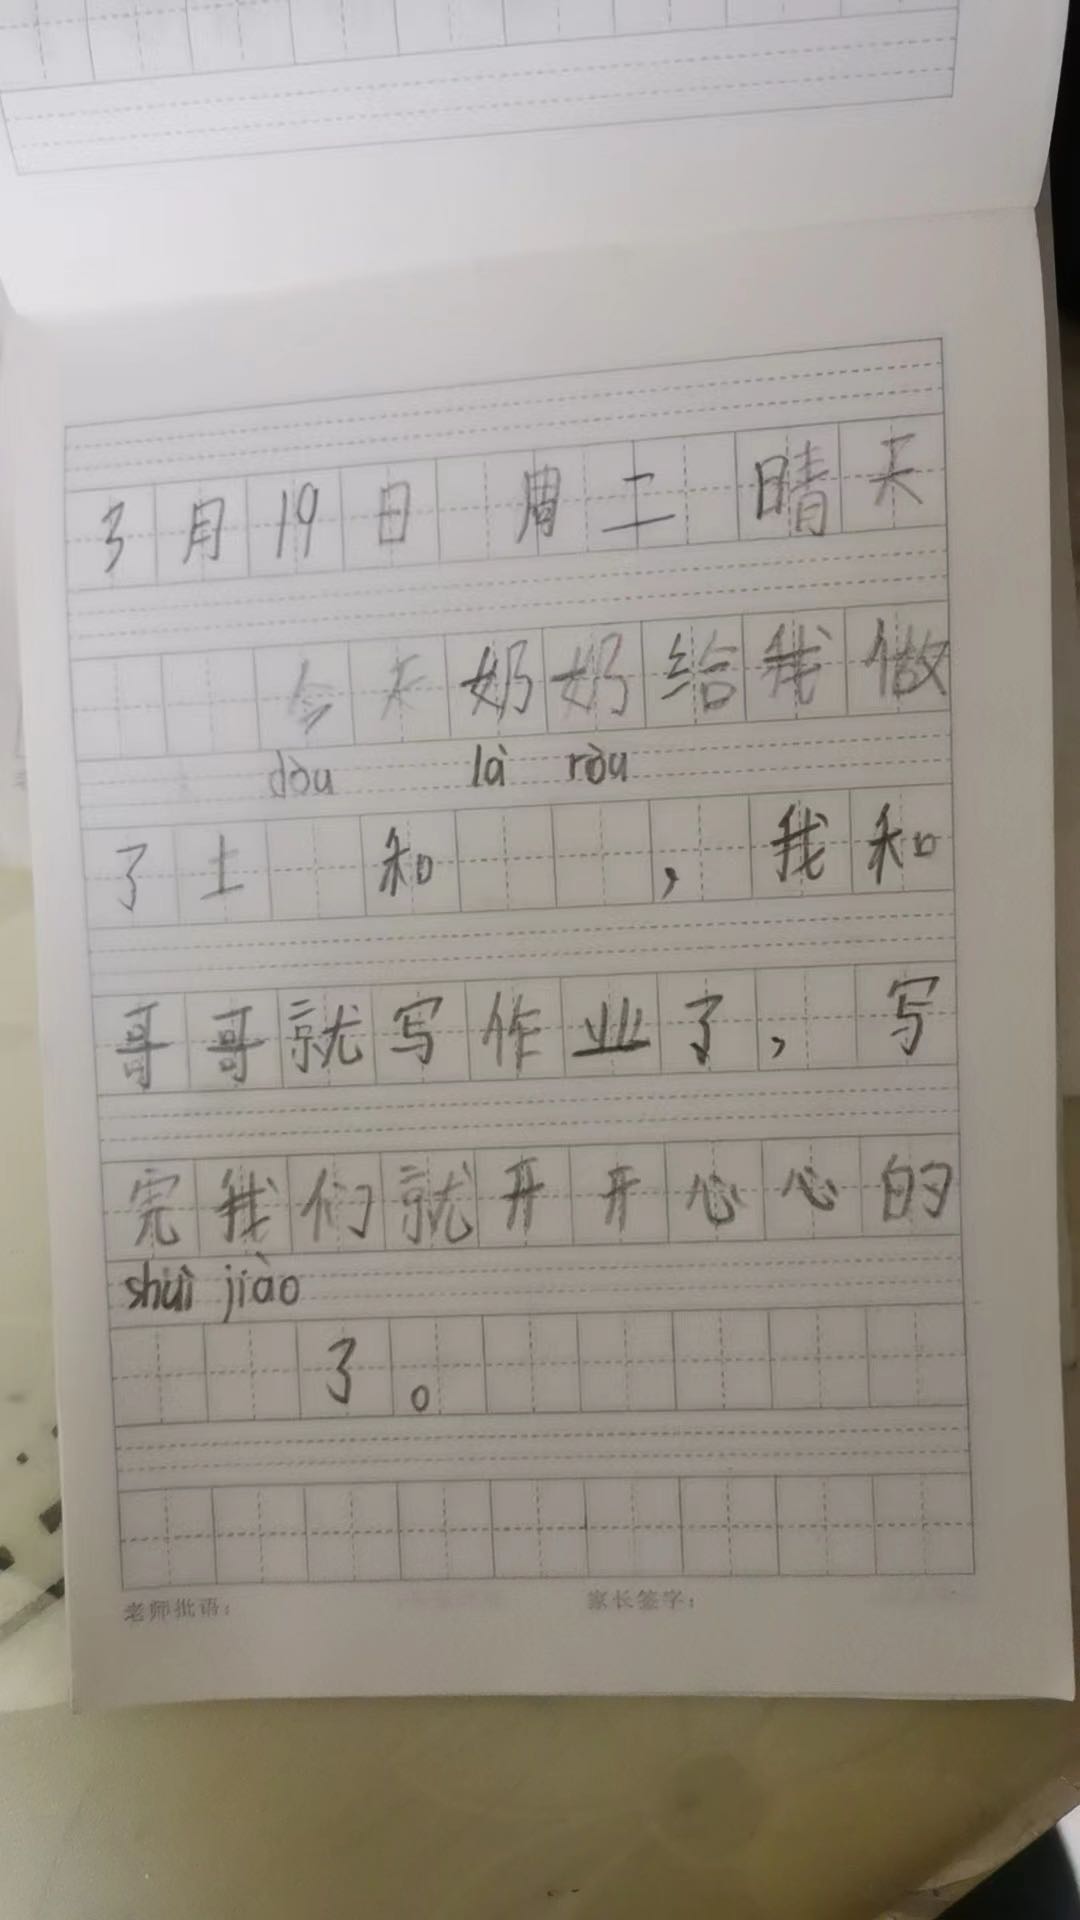 3月19日 周二 晴天
今天奶奶给我做
dòu là ròu
了土 和 ,我和
哥哥就写作业了,写
完我们就开开心心的
shuì jiào
了。
老师批语: 家长签字: